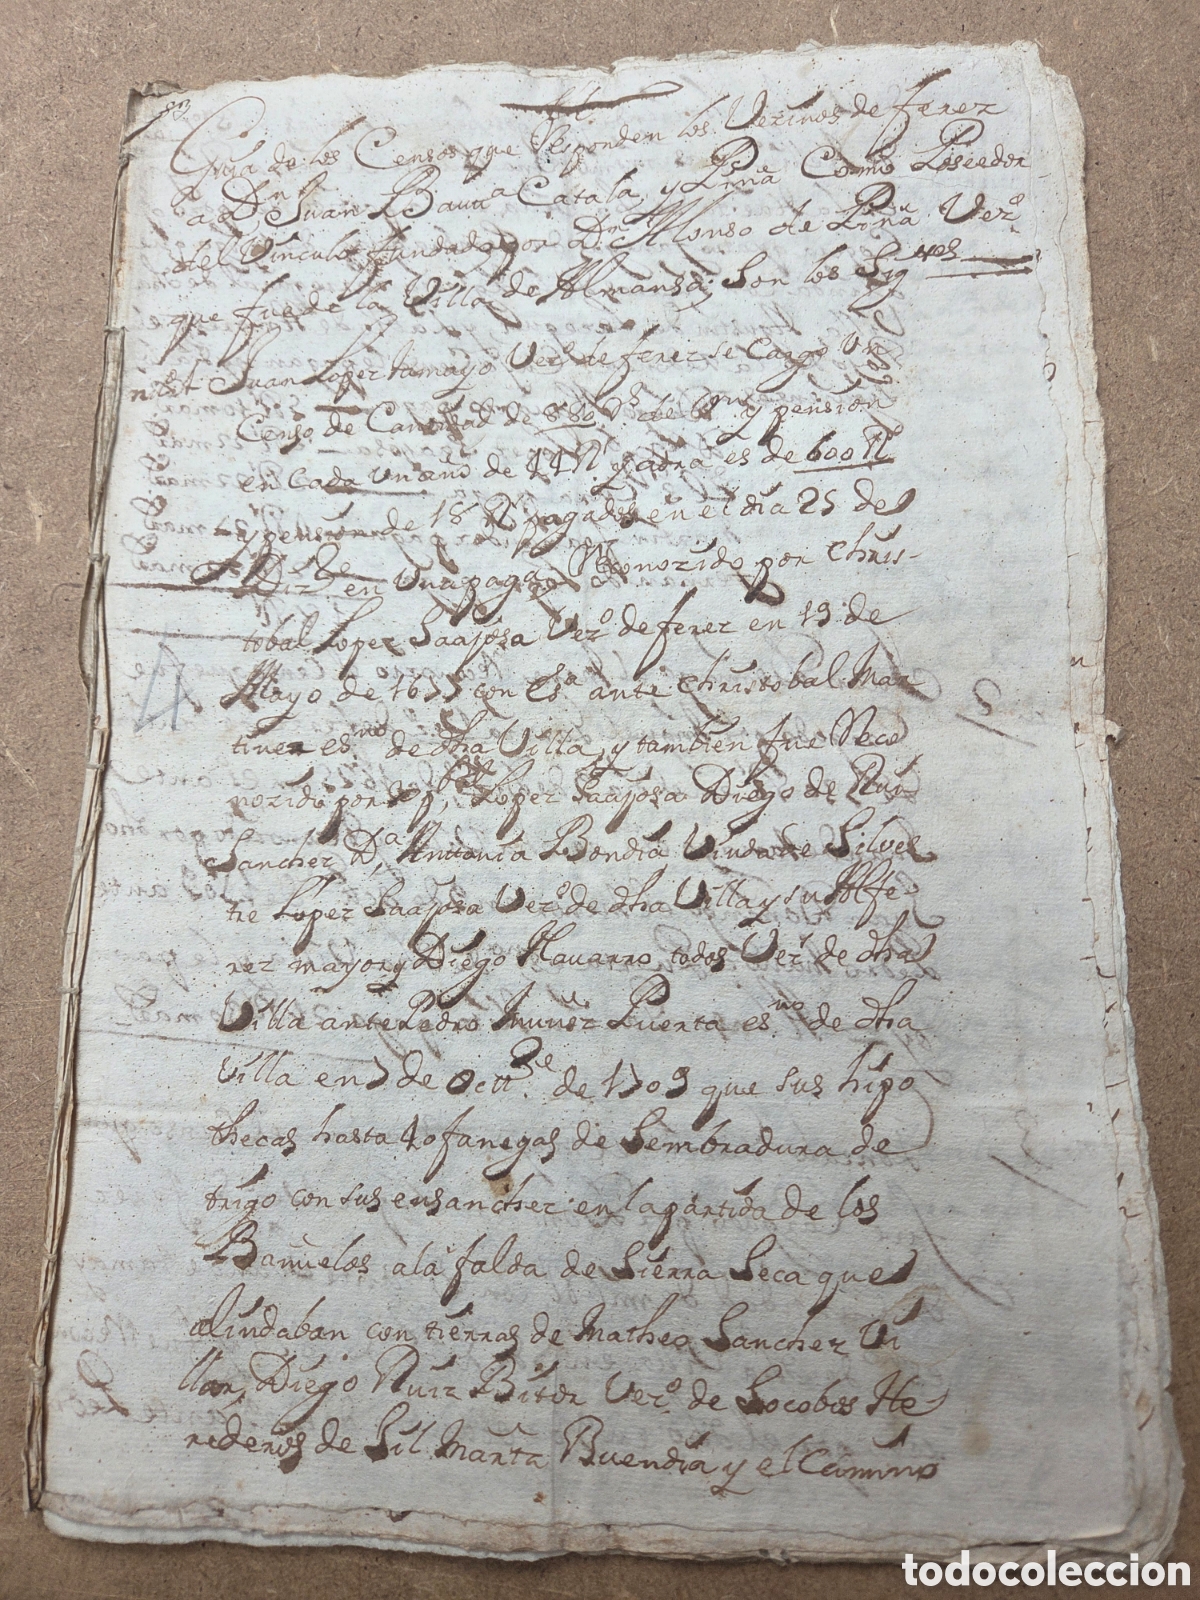 Guia de los Censos que Responden los Vezinos de ferez
a Dn Juan Bauta Catala, y Pina Como Poseedor
del Vinculo fundado por Dn Alonso de Pina Vezo
que fue de la Villa de Almansa; Son los Sigtes
Juan Lopez tamayo Vezo de ferez se Cargo Un
Censo de Cantidad de de y pension
en Cada Un año de y es de 600 Rs
y pension de 18 Rs pagados en el dia 25 de
Dizbe en Una paga Reconozido por Chris-
tobal Lopez Saajosa Vezo de ferez en 19 de
Mayo de 1677 con esa ante Christobal Mar
tinez esno de dha Villa, y tambien fue Reco
nozido por Lopez Saajosa Diego de Rui
Sanchez Da Anttonia Bondia Viuda de Silves
tre Lopez Saajosa Vezo de dha Villa y su Alfe
rez mayor y Diego Navarro todos Vezs de dha
Villa ante Pedro Nuñez Puerta esno de dha
Villa en 7 de octtbe de 1709 que sus hipo
thecas hasta 40 fanegas de Sembradura de
trigo con sus ensanchez en la partida de los
Bañuelos a la falda de Sierra Seca que
alindaban con tierras de Matheo Sanchez Vi
llar, Diego Ruiz Vezo de Socobos He
rederos de Gil Martn Buendia y el Camino
todocoleccion